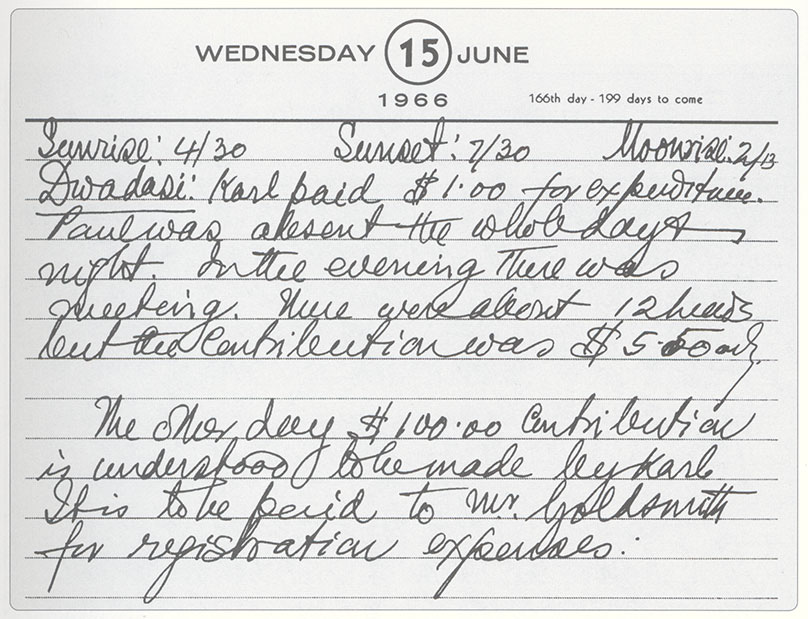 WEDNESDAY 15 JUNE
1966 166th day - 199 days to come
Sunrise: 4/30 Sunset: 7/30 Moonrise: 2/13
Dwadasi: Karl paid $1.00 for expenditure.
Paul was absent the whole day &
night. In the evening There was
meeting. There were about 12 heads
but the Contribution was $5.50 only.
The other day $100.00 Contribution
is understood to be made by Karl
It is to be paid to Mr. Goldsmith
for registration expenses.